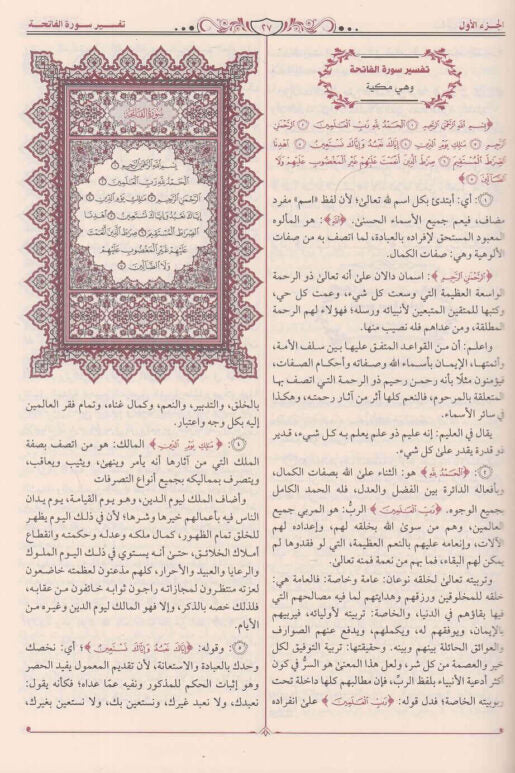 الجزء الأول
٢٧
تفسير سورة الفاتحة
تفسير سورة الفاتحة
وهي مكية
﴿بِسْمِ اللَّهِ الرَّحْمَٰنِ الرَّحِيمِ ۝١ الْحَمْدُ لِلَّهِ رَبِّ الْعَالَمِينَ ۝٢ الرَّحْمَٰنِ
الرَّحِيمِ ۝٣ مَالِكِ يَوْمِ الدِّينِ ۝٤ إِيَّاكَ نَعْبُدُ وَإِيَّاكَ نَسْتَعِينُ ۝٥ اهْدِنَا
الصِّرَاطَ الْمُسْتَقِيمَ ۝٦ صِرَاطَ الَّذِينَ أَنْعَمْتَ عَلَيْهِمْ غَيْرِ الْمَغْضُوبِ عَلَيْهِمْ وَلَا
الضَّالِّينَ ۝٧﴾
﴿١﴾ أي: أبتدئ بكل اسم لله تعالى؛ لأن لفظ «اسم» مفرد
مضاف، فيعم جميع الأسماء الحسنى. ﴿اللَّهِ﴾: هو المألوه
المعبود المستحق لإفراده بالعبادة، لما اتصف به من صفات
الألوهية وهي: صفات الكمال.
﴿الرَّحْمَٰنِ الرَّحِيمِ﴾: اسمان دالان على أنه تعالى ذو الرحمة
الواسعة العظيمة التي وسعت كل شيء، وعمت كل حي،
وكتبها للمتقين المتبعين لأنبيائه ورسله؛ فهؤلاء لهم الرحمة
المطلقة، ومن عداهم فله نصيب منها.
واعلم: أن من القواعد المتفق عليها بين سلف الأمة،
وأئمتها، الإيمان بأسماء الله وصفاته وأحكام الصفات،
فيؤمنون مثلًا بأنه رحمن رحيم ذو الرحمة التي اتصف بها
المتعلقة بالمرحوم، فالنعم كلها أثر من آثار رحمته، وهكذا
في سائر الأسماء.
يقال في العليم: إنه عليم ذو علم يعلم به كل شيء، قدير
ذو قدرة يقدر على كل شيء.
﴿٢﴾ ﴿الْحَمْدُ لِلَّهِ﴾ هو: الثناء على الله بصفات الكمال،
وبأفعاله الدائرة بين الفضل والعدل، فله الحمد الكامل
بجميع الوجوه. ﴿رَبِّ الْعَالَمِينَ﴾ الربُّ: هو المربي جميع
العالمين، وهم من سوى الله بخلقه لهم، وإعداده لهم
الآلات، وإنعامه عليهم بالنعم العظيمة، التي لو فقدوها لم
يمكن لهم البقاء، فما بهم من نعمة فمنه تعالى.
وتربيته تعالى لخلقه نوعان: عامة وخاصة: فالعامة هي:
خلقه للمخلوقين ورزقهم وهدايتهم لما فيه مصالحهم التي
فيها بقاؤهم في الدنيا، والخاصة: تربيته لأوليائه، فيربيهم
بالإيمان، ويوفقهم له، ويكملهم، ويدفع عنهم الصوارف
والعوائق الحائلة بينهم وبينه. وحقيقتها: تربية التوفيق لكل
خير والعصمة من كل شر، ولعل هذا المعنىٰ هو السرُّ في كون
أكثر أدعية الأنبياء بلفظ الربِّ، فإن مطالبهم كلها داخلة تحت
ربوبيته الخاصة؛ فدل قوله: ﴿رَبِّ الْعَالَمِينَ﴾ علىٰ انفراده
سورة الفاتحة
بِسْمِ اللَّهِ الرَّحْمَٰنِ الرَّحِيمِ ۝١
الْحَمْدُ لِلَّهِ رَبِّ الْعَالَمِينَ ۝٢
الرَّحْمَٰنِ الرَّحِيمِ ۝٣ مَالِكِ يَوْمِ الدِّينِ ۝٤
إِيَّاكَ نَعْبُدُ وَإِيَّاكَ نَسْتَعِينُ ۝٥ اهْدِنَا
الصِّرَاطَ الْمُسْتَقِيمَ ۝٦ صِرَاطَ الَّذِينَ أَنْعَمْتَ
عَلَيْهِمْ غَيْرِ الْمَغْضُوبِ عَلَيْهِمْ
وَلَا الضَّالِّينَ ۝٧
بالخلق، والتدبير، والنعم، وكمال غناه، وتمام فقر العالمين
إليه بكل وجه واعتبار.
﴿٤﴾ ﴿مَالِكِ يَوْمِ الدِّينِ﴾ المالك: هو من اتصف بصفة
الملك التي من آثارها أنه يأمر وينهىٰ، ويثيب ويعاقب،
ويتصرف بمماليكه بجميع أنواع التصرفات
وأضاف الملك ليوم الدين، وهو يوم القيامة، يوم يدان
الناس فيه بأعمالهم خيرها وشرها؛ لأن في ذلك اليوم يظهر
للخلق تمام الظهور، كمال ملكه وعدله وحكمته وانقطاع
أملاك الخلائق، حتىٰ أنه يستوي في ذلك اليوم الملوك
والرعايا والعبيد والأحرار، كلهم مذعنون لعظمته خاضعون
لعزته منتظرون لمجازاته راجون ثوابه خائفون من عقابه،
فلذلك خصه بالذكر، وإلا فهو المالك ليوم الدين وغيره من
الأيام.
﴿٥﴾ وقوله: ﴿إِيَّاكَ نَعْبُدُ وَإِيَّاكَ نَسْتَعِينُ﴾؛ أي: نخصك
وحدك بالعبادة والاستعانة، لأن تقديم المعمول يفيد الحصر
وهو إثبات الحكم للمذكور ونفيه عمَّا عداه؛ فكأنه يقول:
نعبدك، ولا نعبد غيرك، ونستعين بك، ولا نستعين بغيرك،